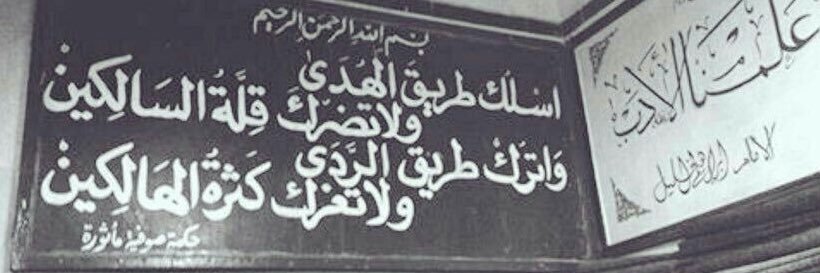 بسم الله الرحمن الرحيم
اسلك طريق الهدى
ولا تضرك قلة السالكين
واترك طريق الردى
ولا تغرك كثرة الهالكين
حكمة صوفية مأثورة
علمنا الأدب